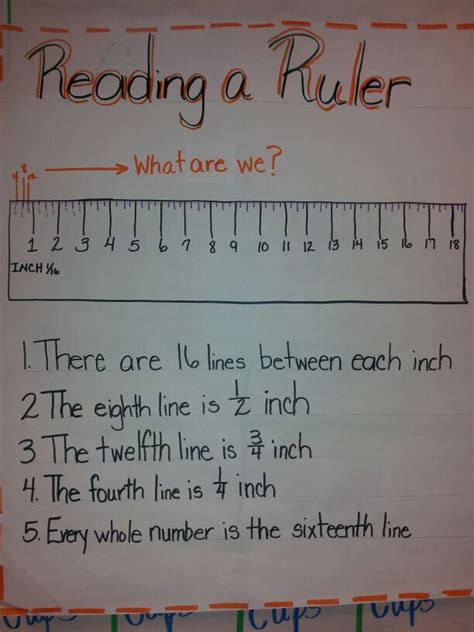 Reading a Ruler
4 8 12 What are we?
1 2 3 4 5 6 7 8 9 10 11 12 13 14 15 16 17 18
INCH 1/16
1. There are 16 lines between each inch
2 The eighth line is 1/2 inch
3 The twelfth line is 3/4 inch
4. The fourth line is 1/4 inch
5. Every whole number is the sixteenth line
Cups Cups Cups Cups